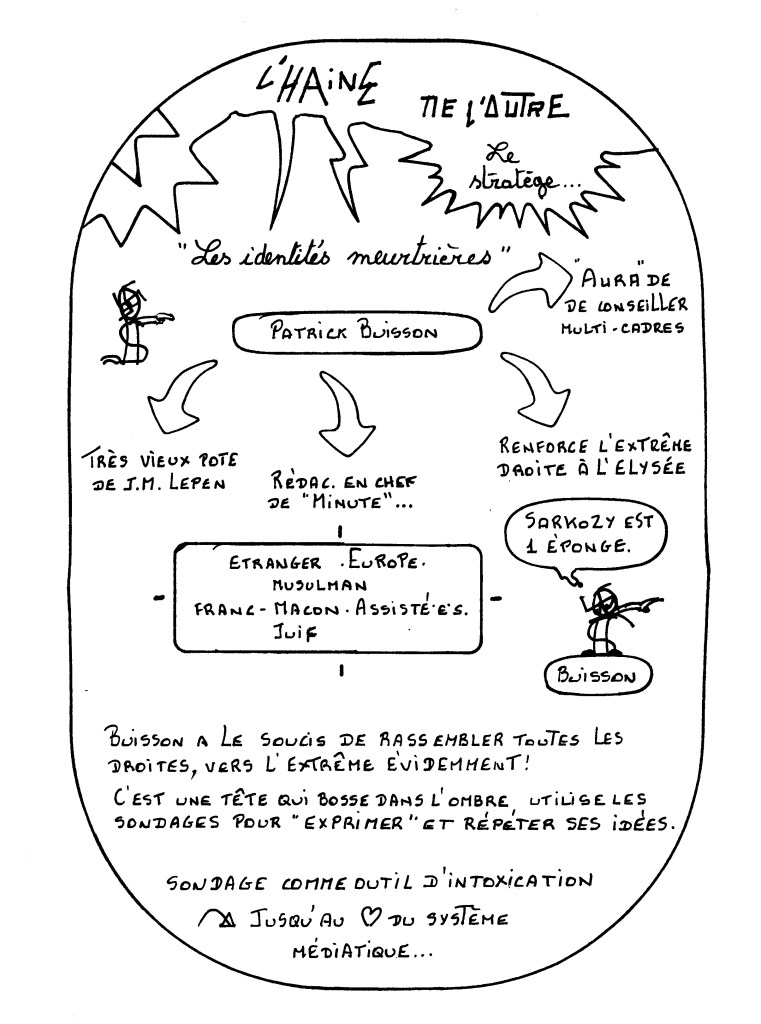 L'HAINE
DE L'AUTRE
Le
stratège...
"Les identités meurtrières"
"AURA" DE
DE CONSEILLER
MULTI-CADRES
PATRICK BUISSON
TRÈS VIEUX POTE
DE J.M. LEPEN
RÉDAC. EN CHEF
DE "MINUTE"...
RENFORCE L'EXTRÊME
DROITE À L'ELYSÉE
SARKOZY EST
1 ÉPONGE.
ETRANGER . EUROPE.
MUSULMAN
FRANC-MACON. ASSISTÉ.E.S.
JUIF
BUISSON
BUISSON A LE SOUCIS DE RASSEMBLER TOUTES LES
DROITES, VERS L'EXTRÊME ÉVIDEMMENT!
C'EST UNE TÊTE QUI BOSSE DANS L'OMBRE, UTILISE LES
SONDAGES POUR "EXPRIMER" ET RÉPÉTER SES IDÉES.
SONDAGE COMME OUTIL D'INTOXICATION
JUSQU'AU ♡ DU SYSTÈME
MÉDIATIQUE...